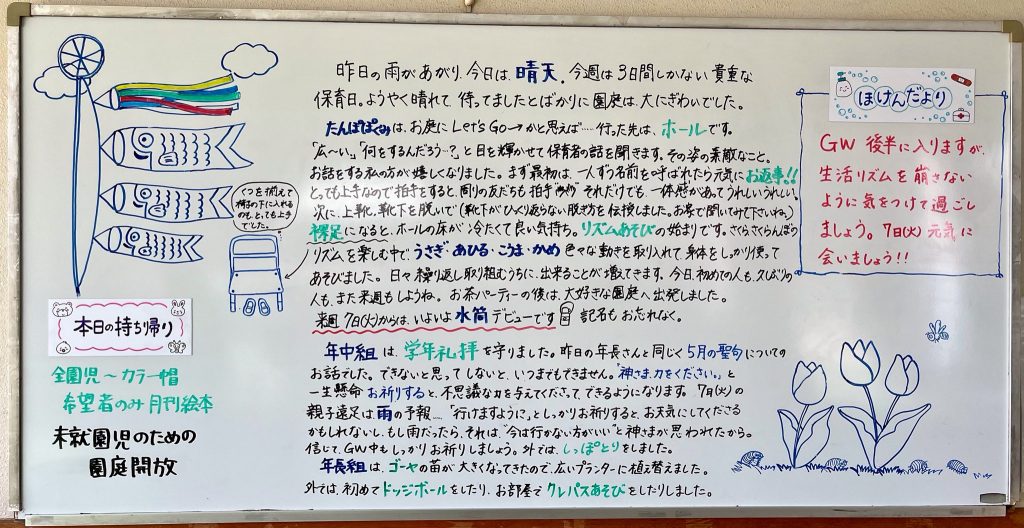 昨日の雨があがり、今日は、晴天。今週は3日間しかない貴重な
保育日。ようやく晴れて待ってましたとばかりに園庭は、大にぎわいでした。
たんぽぽぐみは、お庭にLet's Go→かと思えば……行った先は、ホールです。
「広〜い」「何をするんだろう…?」と目を輝かせて保育者の話を聞きます。その姿の素敵なこと。
お話をする私の方が嬉しくなりました。まず最初は、一人ずつ名前を呼ばれたら元気にお返事!!
とっても上手なので拍手をすると、周りの友だちも拍手 それだけでも、一体感があってうれしいうれしい。
次に、上靴、靴下を脱いで(靴下がひっくり返らない脱ぎ方を伝授しました。お家で聞いてみて下さいね。)
裸足になると、ホールの床が冷たくて良い気持ち。リズムあそびの始まりです。さくらさくらんぼの
リズムを楽しむ中で、うさぎ・あひる・こうま・かめ 色々な動きを取り入れて身体をしっかり使って
あそびました。日々繰り返し取り組むうちに、出来ることが増えてきます。今日、初めての人も、久しぶりの
人も、また来週もしようね。お茶パーティーの後は、大好きな園庭へ出発しました。
来週7日(火)からは、いよいよ水筒デビューです 記名もお忘れなく。
年中組は、学年礼拝を守りました。昨日の年長さんと同じく5月の聖句についての
お話でした。できないと思ってしないと、いつまでもできません。"神さま、力をください。"と
一生懸命お祈りすると、不思議な力を与えてくださってできるようになります。7日(火)の
親子遠足は、雨の予報…。「行けますように」としっかりお祈りすると、お天気にしてくださる
かもしれないし、もし雨だったら、それは、"今は行かない方がいい"と神さまが思われたから。
信じて、GW中もしっかりお祈りしましょう。外では、しっぽとりをしました。
年長組は、ゴーヤの苗が大きくなってきたので、広いプランターに植え替えました。
外では、初めてドッジボールをしたり、お部屋でクレパスあそびをしたりしました。
くつを揃えて
椅子の下に入れる
のも、とっても上手
でした。
本日の持ち帰り
全園児〜カラー帽
希望者のみ月刊絵本
未就園児のための
園庭開放
ほけんだより
GW 後半に入りますが、
生活リズムを崩さない
ように気をつけて過ごし
ましょう。7日(火)元気に
会いましょう!!